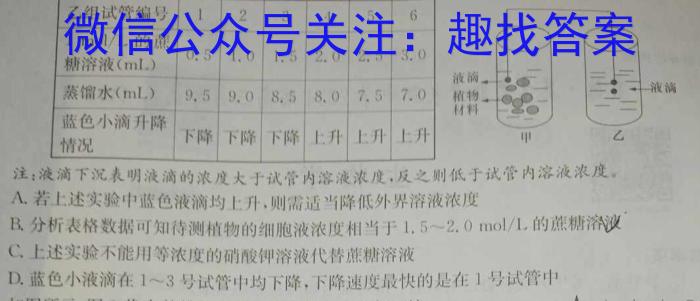 乙组试管编号 1 2 3 4 5 6
微信公众号关注：趣找答案
糖溶液(mL) 0.5 1.0 1.5 2.0 2.5 3.0
蒸馏水(mL) 9.5 9.0 8.5 8.0 7.5 7.0
蓝色小滴升降
情况 下降 下降 下降 上升 上升 上升
液滴
植物
材料
甲
液滴
乙
注:液滴下沉表明液滴的浓度大于试管内溶液浓度,反之则低于试管内溶液浓度。
A. 若上述实验中蓝色液滴均上升,则需适当降低外界溶液浓度
B. 分析表格数据可知待测植物的细胞液浓度相当于 1.5~2.0 mol/L 的蔗糖溶液
C. 上述实验不能用等浓度的硝酸钾溶液代替蔗糖溶液
D. 蓝色小液滴在 1~3 号试管中均下降,下降速度最快的是在 1 号试管中